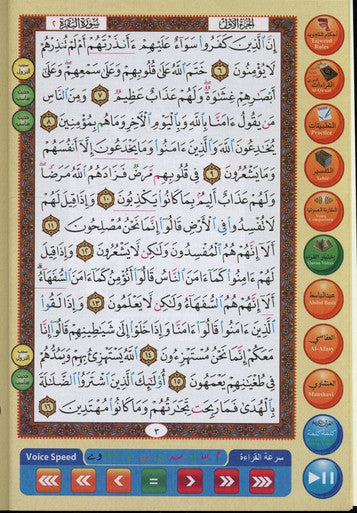 سُورَةُ البَقَرَةِ ٢
الجُزْءُ الأوَّلُ
إِنَّ ٱلَّذِينَ كَفَرُوا۟ سَوَآءٌ عَلَيْهِمْ ءَأَنذَرْتَهُمْ أَمْ لَمْ تُنذِرْهُمْ
لَا يُؤْمِنُونَ ٦ خَتَمَ ٱللَّهُ عَلَىٰ قُلُوبِهِمْ وَعَلَىٰ سَمْعِهِمْ وَعَلَىٰٓ
أَبْصَٰرِهِمْ غِشَٰوَةٌ وَلَهُمْ عَذَابٌ عَظِيمٌ ٧ وَمِنَ ٱلنَّاسِ
مَن يَقُولُ ءَامَنَّا بِٱللَّهِ وَبِٱلْيَوْمِ ٱلْءَاخِرِ وَمَا هُم بِمُؤْمِنِينَ ٨
يُخَٰدِعُونَ ٱللَّهَ وَٱلَّذِينَ ءَامَنُوا۟ وَمَا يَخْدَعُونَ إِلَّآ أَنفُسَهُمْ
وَمَا يَشْعُرُونَ ٩ فِى قُلُوبِهِم مَّرَضٌ فَزَادَهُمُ ٱللَّهُ مَرَضًا
وَلَهُمْ عَذَابٌ أَلِيمٌۢ بِمَا كَانُوا۟ يَكْذِبُونَ ١٠ وَإِذَا قِيلَ لَهُمْ
لَا تُفْسِدُوا۟ فِى ٱلْأَرْضِ قَالُوٓا۟ إِنَّمَا نَحْنُ مُصْلِحُونَ ١١
أَلَآ إِنَّهُمْ هُمُ ٱلْمُفْسِدُونَ وَلَٰكِن لَّا يَشْعُرُونَ ١٢ وَإِذَا قِيلَ
لَهُمْ ءَامِنُوا۟ كَمَآ ءَامَنَ ٱلنَّاسُ قَالُوٓا۟ أَنُؤْمِنُ كَمَآ ءَامَنَ ٱلسُّفَهَآءُ
أَلَآ إِنَّهُمْ هُمُ ٱلسُّفَهَآءُ وَلَٰكِن لَّا يَعْلَمُونَ ١٣ وَإِذَا لَقُوا۟
ٱلَّذِينَ ءَامَنُوا۟ قَالُوٓا۟ ءَامَنَّا وَإِذَا خَلَوْا۟ إِلَىٰ شَيَٰطِينِهِمْ قَالُوٓا۟ إِنَّا
مَعَكُمْ إِنَّمَا نَحْنُ مُسْتَهْزِءُونَ ١٤ ٱللَّهُ يَسْتَهْزِئُ بِهِمْ وَيَمُدُّهُمْ
فِى طُغْيَٰنِهِمْ يَعْمَهُونَ ١٥ أُو۟لَٰٓئِكَ ٱلَّذِينَ ٱشْتَرَوُا۟ ٱلضَّلَٰلَةَ
بِٱلْهُدَىٰ فَمَا رَبِحَت تِّجَٰرَتُهُمْ وَمَا كَانُوا۟ مُهْتَدِينَ ١٦
٣
أحكام التجويد
Tajweed Rules
Al-Qeraat
Practice
التفسير
Comparison
إختيار القراء
Quran Voices
عبدالباسط
Abdul Basit
العفاسي
Al-Afasy
المنشاوي
Manshawi
Voice Speed
سرعة القراءة